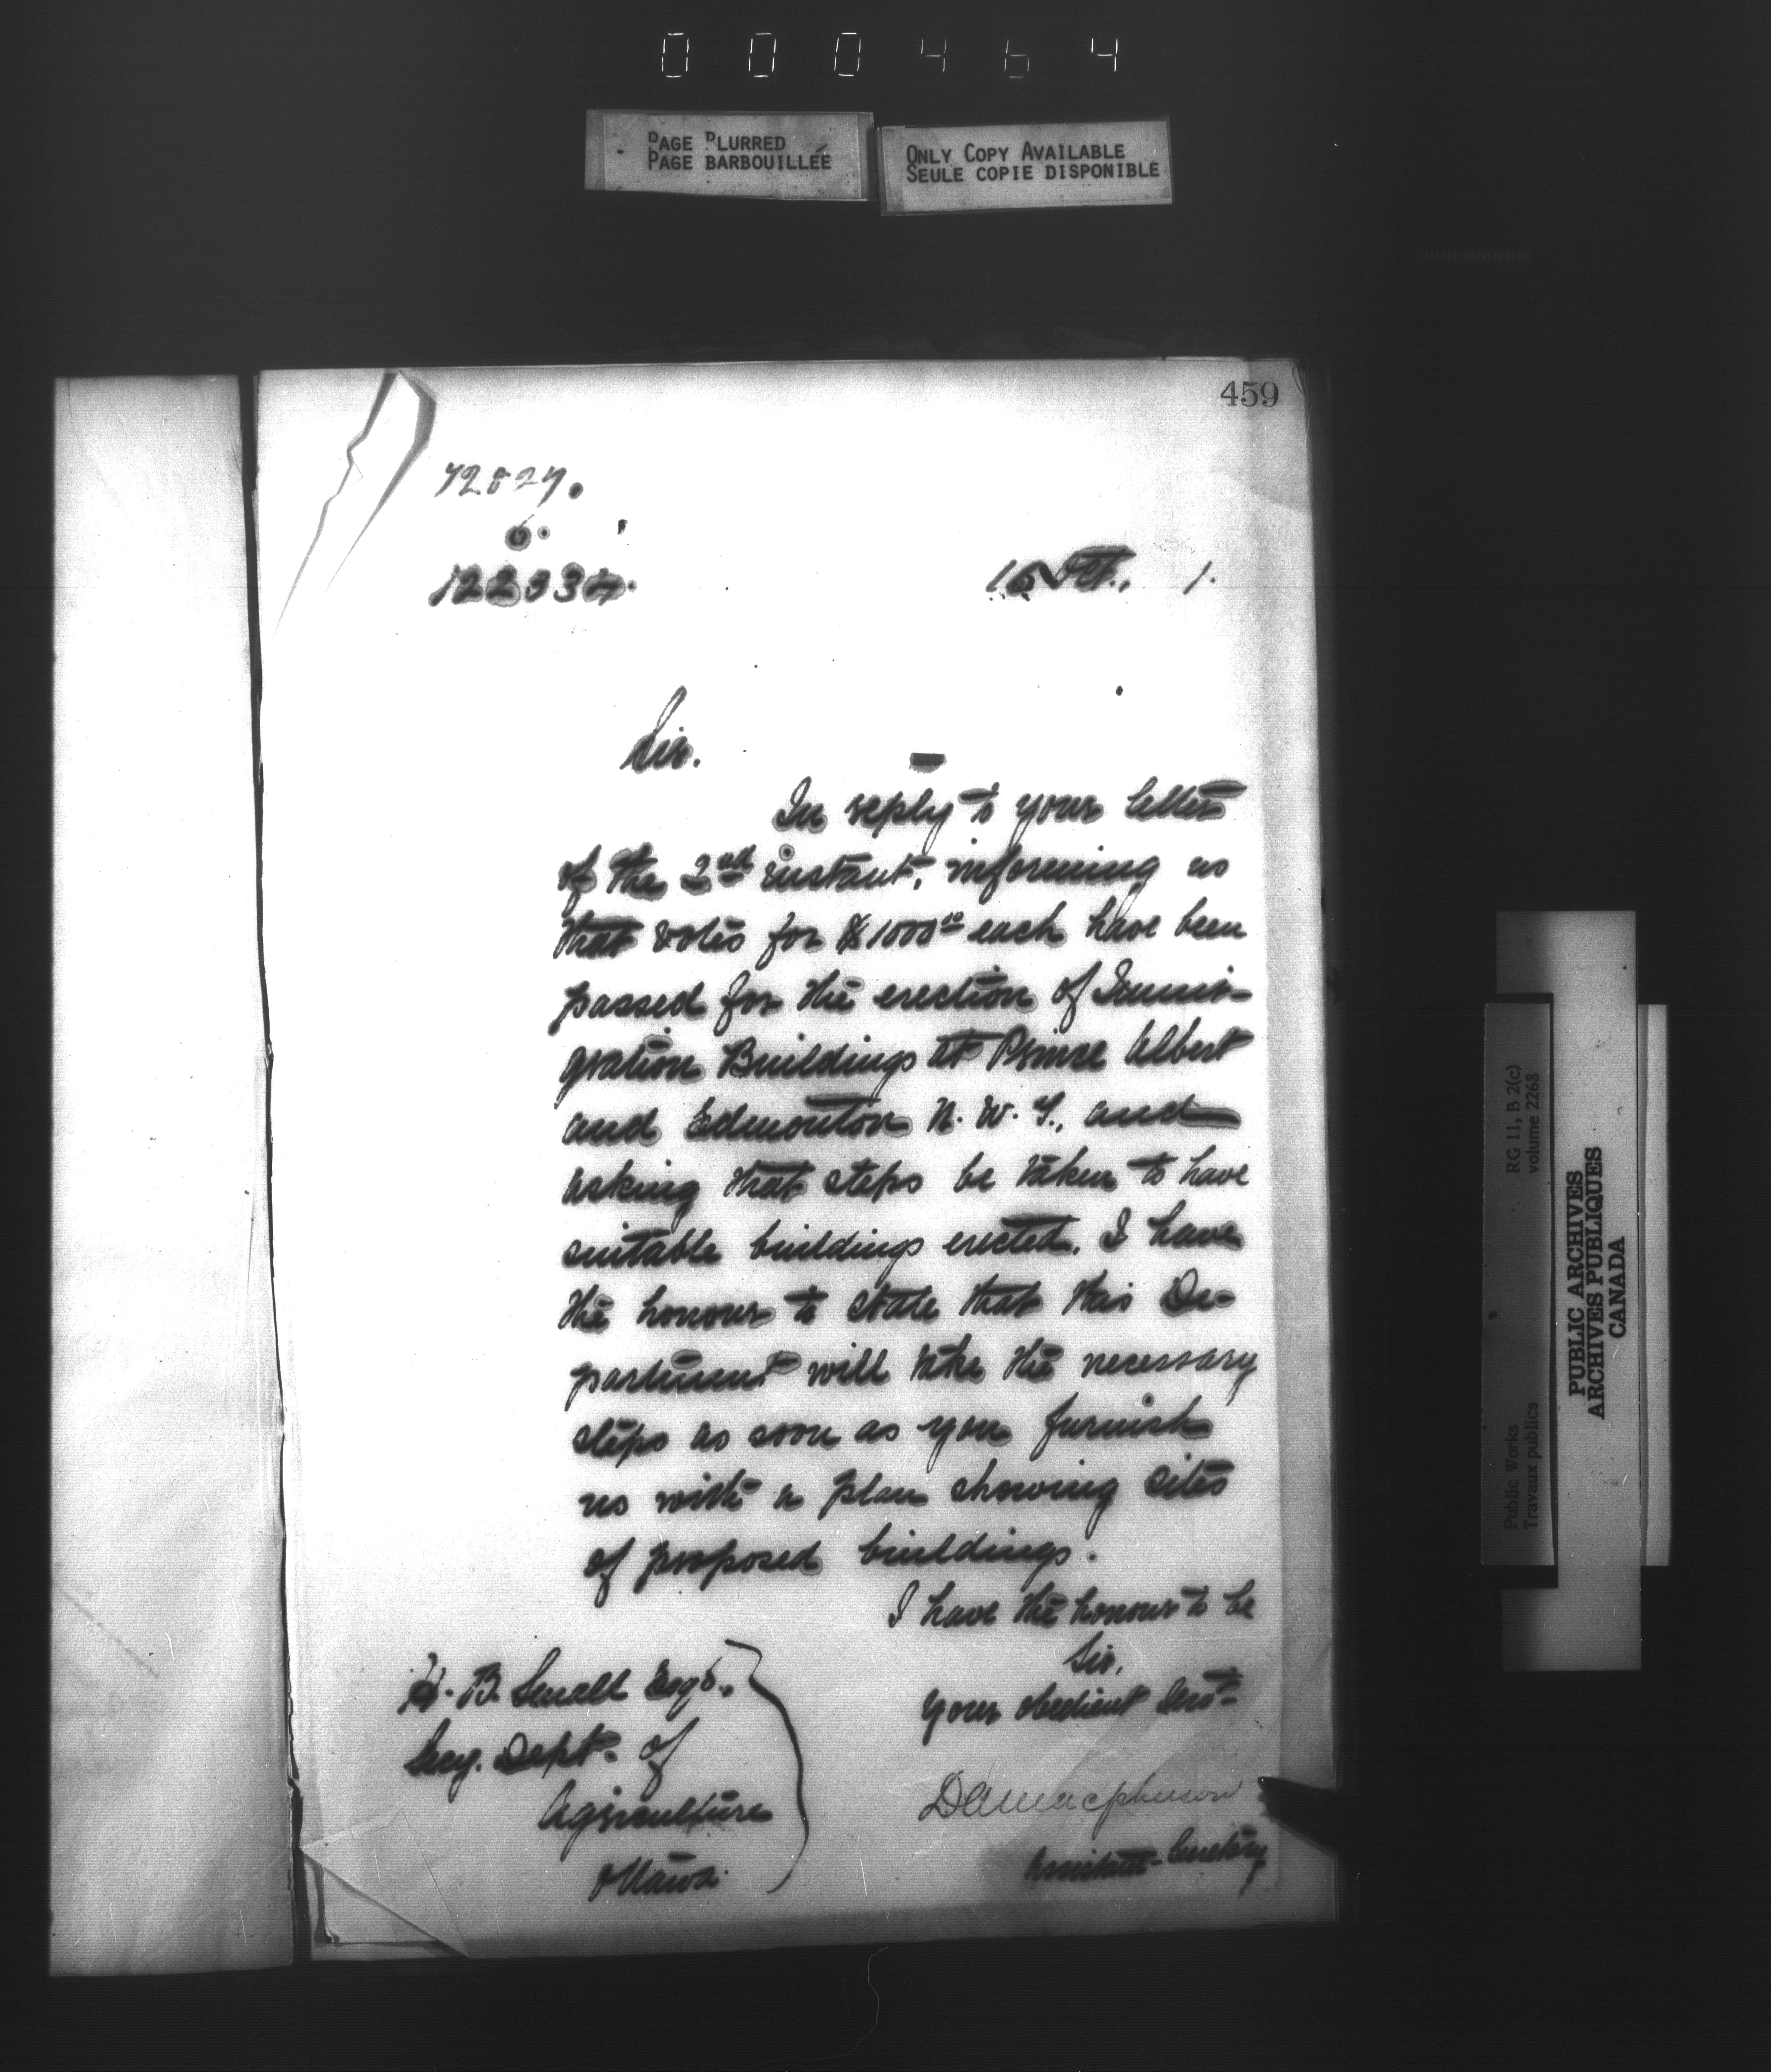 000464
PAGE BLURRED
PAGE BARBOUILLÉE
ONLY COPY AVAILABLE
SEULE COPIE DISPONIBLE
459
72827.
16 Oct., 1.
Sir.
In reply to your letter
of the 2nd instant, informing us
that votes for $1000 00 each have been
passed for the erection of Immi-
gration Buildings at Prince Albert
and Edmonton N. W. T., and
asking that steps be taken to have
suitable buildings erected. I have
the honour to state that this De-
partment will take the necessary
steps as soon as you furnish
us with a plan showing sites
of proposed buildings.
I have the honour to be
Sir,
Your obedient Servt
H. B. Small Esqr.,
Secy. Dept. of
Agriculture
Ottawa.
D A Macpherson
Assistant-Secretary
Public Works
Travaux publics
RG 11, B 2(c)
volume 2268
PUBLIC ARCHIVES
ARCHIVES PUBLIQUES
CANADA